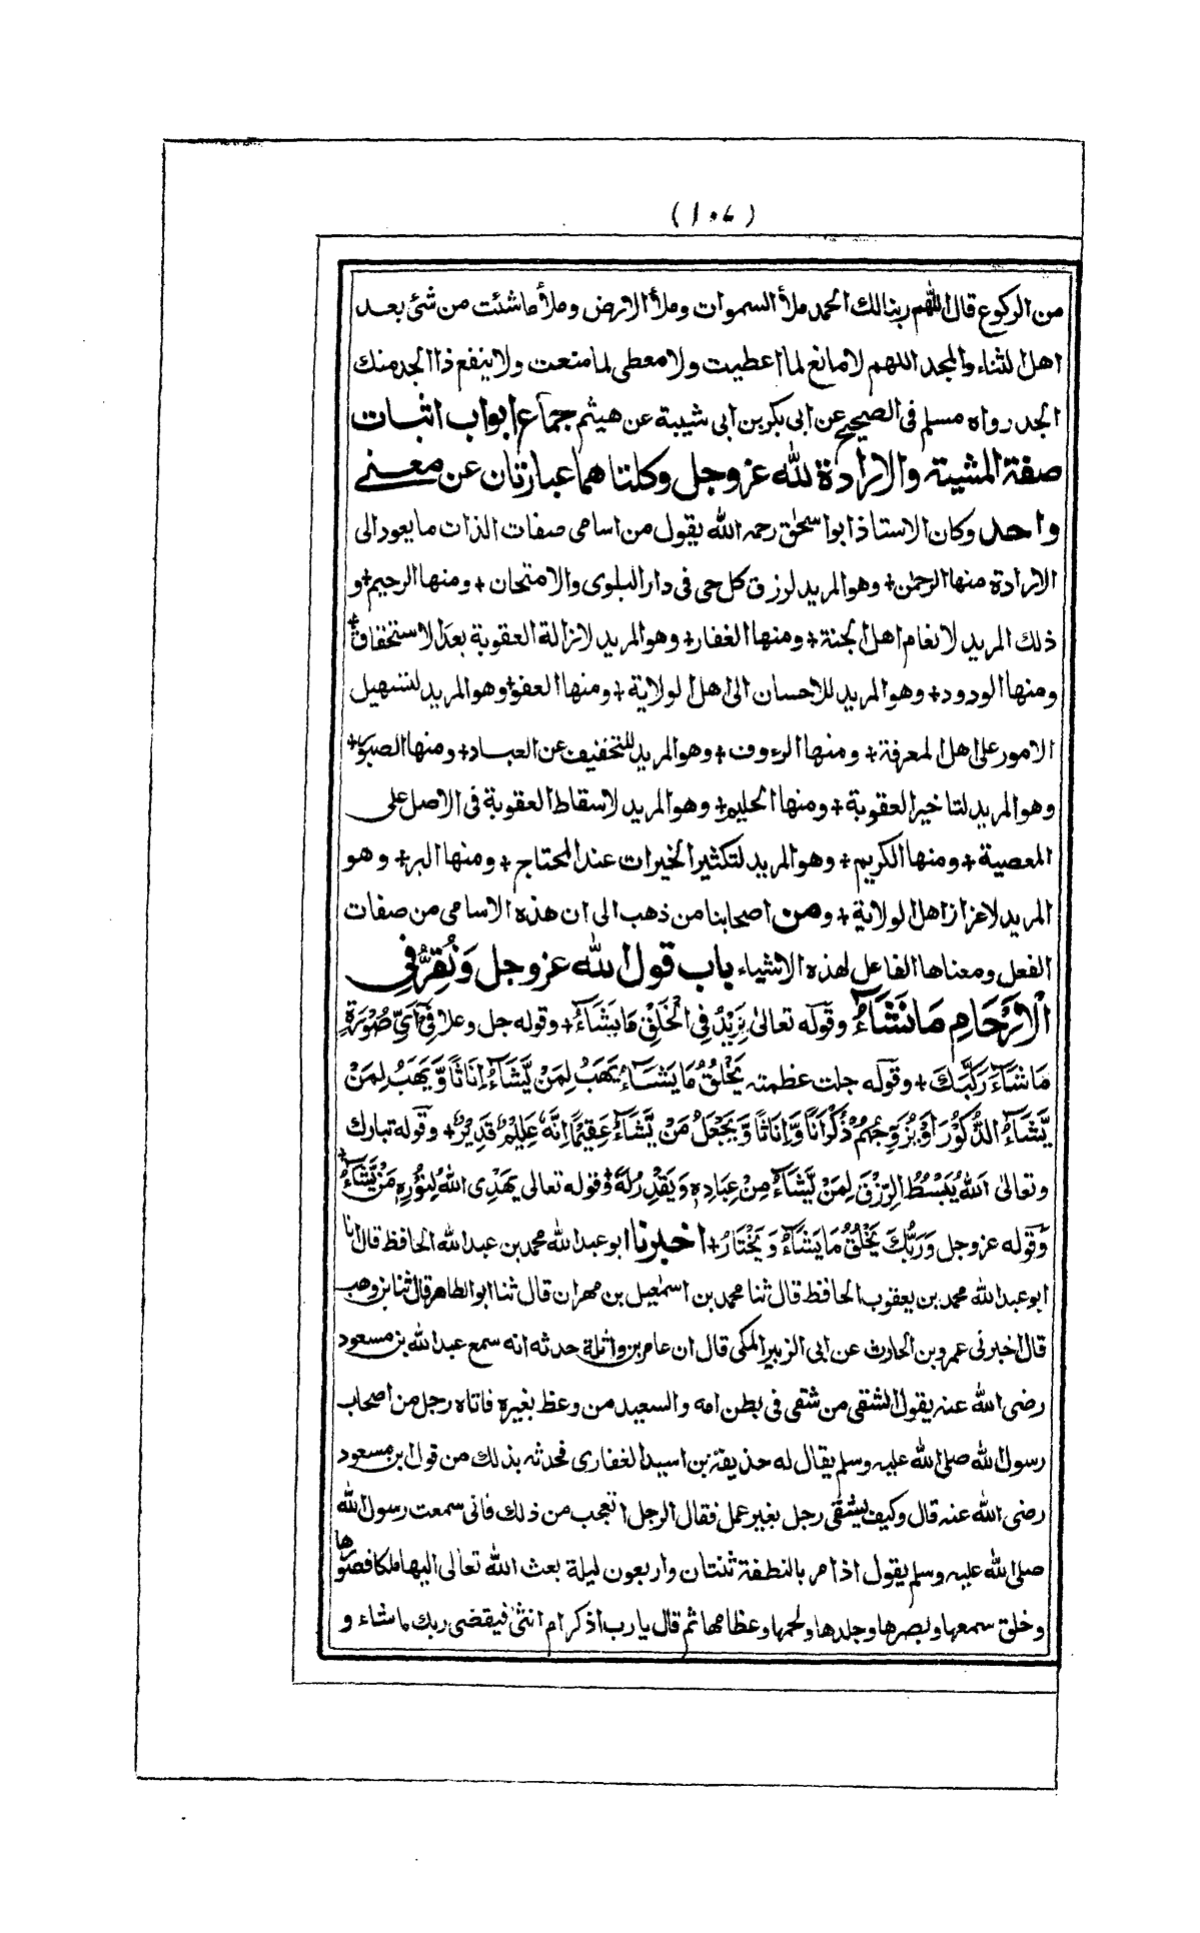 (۱۰۷)
من الركوع قال اللهم ربنا لك الحمد ملأ السموات وملأ الارض وملأ ما شئت من شئ بعد
اهل الثناء والمجد اللهم لا مانع لما اعطيت ولا معطى لما منعت ولا ينفع ذا الجد منك
الجد رواه مسلم فى الصحيح عن ابى بكر بن ابى شيبة عن هيثم جماع ابواب اثبات
صفة المشيئة والارادة لله عزوجل وكلتاهما عبارتان عن معنى
واحد وكان الاستاذ ابو اسحٰق رحمه الله يقول من اسامى صفات الذات ما يعود الى
الارادة منها الرحمٰن + وهو المريد لرزق كل حى فى دار البلوى والامتحان + ومنها الرحيم + و
ذلك المريد لانعام اهل الجنة + ومنها الغفار + وهو المريد لازالة العقوبة بعد الاستحقاق +
ومنها الودود + وهو المريد للاحسان الى اهل الولاية + ومنها العفو + وهو المريد لتسهيل
الامور على اهل المعرفة + ومنها الرءوف + وهو المريد للتخفيف عن العباد + ومنها الصبور +
وهو المريد لتاخير العقوبة + ومنها الحليم + وهو المريد لاسقاط العقوبة فى الاصل على
المعصية + ومنها الكريم + وهو المريد لتكثير الخيرات عند المحتاج + ومنها البر + وهو
المريد لاعزاز اهل الولاية + ومن اصحابنا من ذهب الى ان هذه الاسامى من صفات
الفعل ومعناها الفاعل لهذه الاشياء باب قول الله عزوجل وَنُقِرُّ فِى
الْاَرْحَامِ مَا نَشَآءُ وقوله تعالىٰ يَزِيْدُ فِى الْخَلْقِ مَا يَشَآءُ + وقوله جل وعلا فِىْٓ اَىِّ صُوْرَةٍ
مَّا شَآءَ رَكَّبَكَ + وقوله جلت عظمته يَخْلُقُ مَا يَشَآءُ يَهَبُ لِمَنْ يَّشَآءُ اِنَاثًا وَّيَهَبُ لِمَنْ
يَّشَآءُ الذُّكُوْرَ اَوْ يُزَوِّجُهُمْ ذُكْرَانًا وَّاِنَاثًا وَّيَجْعَلُ مَنْ يَّشَآءُ عَقِيْمًا اِنَّهٗ عَلِيْمٌ قَدِيْرٌ + وقوله تبارك
وتعالىٰ اَللّٰهُ يَبْسُطُ الرِّزْقَ لِمَنْ يَّشَآءُ مِنْ عِبَادِهٖ وَيَقْدِرُ لَهٗ + وقوله تعالى يَهْدِى اللّٰهُ لِنُوْرِهٖ مَنْ يَّشَآءُ +
وقوله عزوجل وَرَبُّكَ يَخْلُقُ مَا يَشَآءُ وَيَخْتَارُ + اخبرنا ابو عبد الله محمد بن عبد الله الحافظ قال انا
ابو عبد الله محمد بن يعقوب الحافظ قال ثنا محمد بن اسمٰعيل بن مهران قال ثنا ابو الطاهر قال ثنا بن وهب
قال اخبرنى عمرو بن الحارث عن ابى الزبير المكى قال ان عامر بن واثلة حدثه انه سمع عبد الله بن مسعود
رضى الله عنه يقول الشقى من شقى فى بطن امه والسعيد من وعظ بغيره فاتاه رجل من اصحاب
رسول الله صلى الله عليه وسلم يقال له حذيفة بن اسيد الغفارى فحدثه بذلك من قول ابن مسعود
رضى الله عنه قال وكيف يشقى رجل بغير عمل فقال الرجل اتعجب من ذلك فانى سمعت رسول الله
صلى الله عليه وسلم يقول اذا مر بالنطفة ثنتان واربعون ليلة بعث الله تعالى اليها ملكا فصورها
وخلق سمعها وبصرها وجلدها ولحمها وعظامها ثم قال يا رب اذكر ام انثىٰ فيقضى ربك ما شاء و